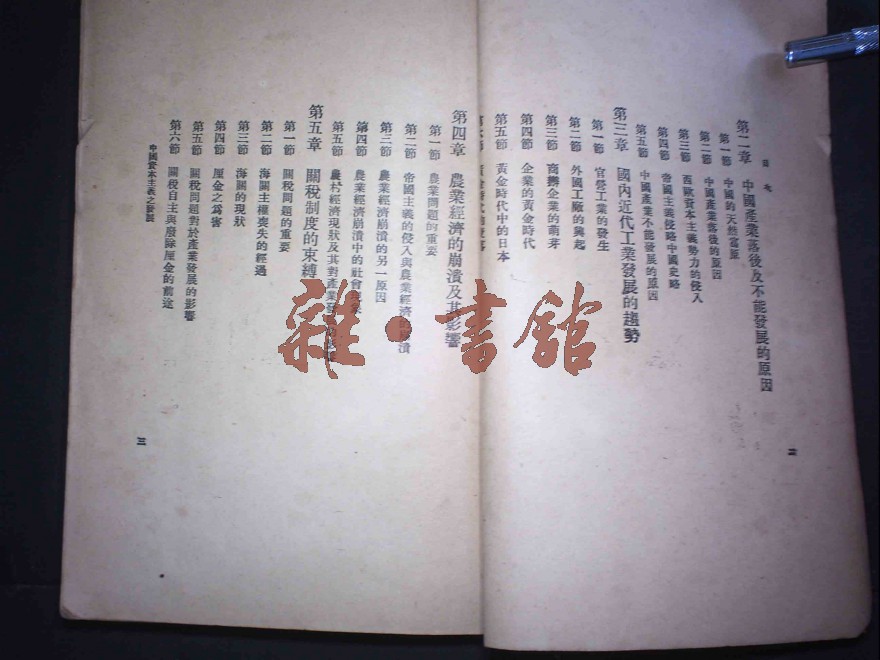 目次
第二章 中國產業落後及不能發展的原因
第一節 中國的天然富原
第二節 中國產業落後的原因
第三節 西歐資本主義勢力的侵入
第四節 帝國主義侵略中國史略
第五節 中國產業不能發展的原因
第三章 國內近代工業發展的趨勢
第一節 官營工業的發生
第二節 外國工廠的興起
第三節 商辦企業的萌芽
第四節 企業的黃金時代
第五節 黃金時代中的日本
二
第四章 農業經濟的崩潰及其影響
第一節 農業問題的重要
第二節 帝國主義的侵入與農業經濟的崩潰
第三節 農業經濟崩潰的另一原因
第四節 農業經濟崩潰中的社會
第五節 農村經濟現狀及其對產業
第五章 關稅制度的束縛
第一節 關稅問題的重要
第二節 海關主權喪失的經過
第三節 海關的現狀
第四節 厘金之為害
第五節 關稅問題對於產業發展的影響
第六節 關稅自主與廢除厘金的前途
中國資本主義之發展
三
雜·書館